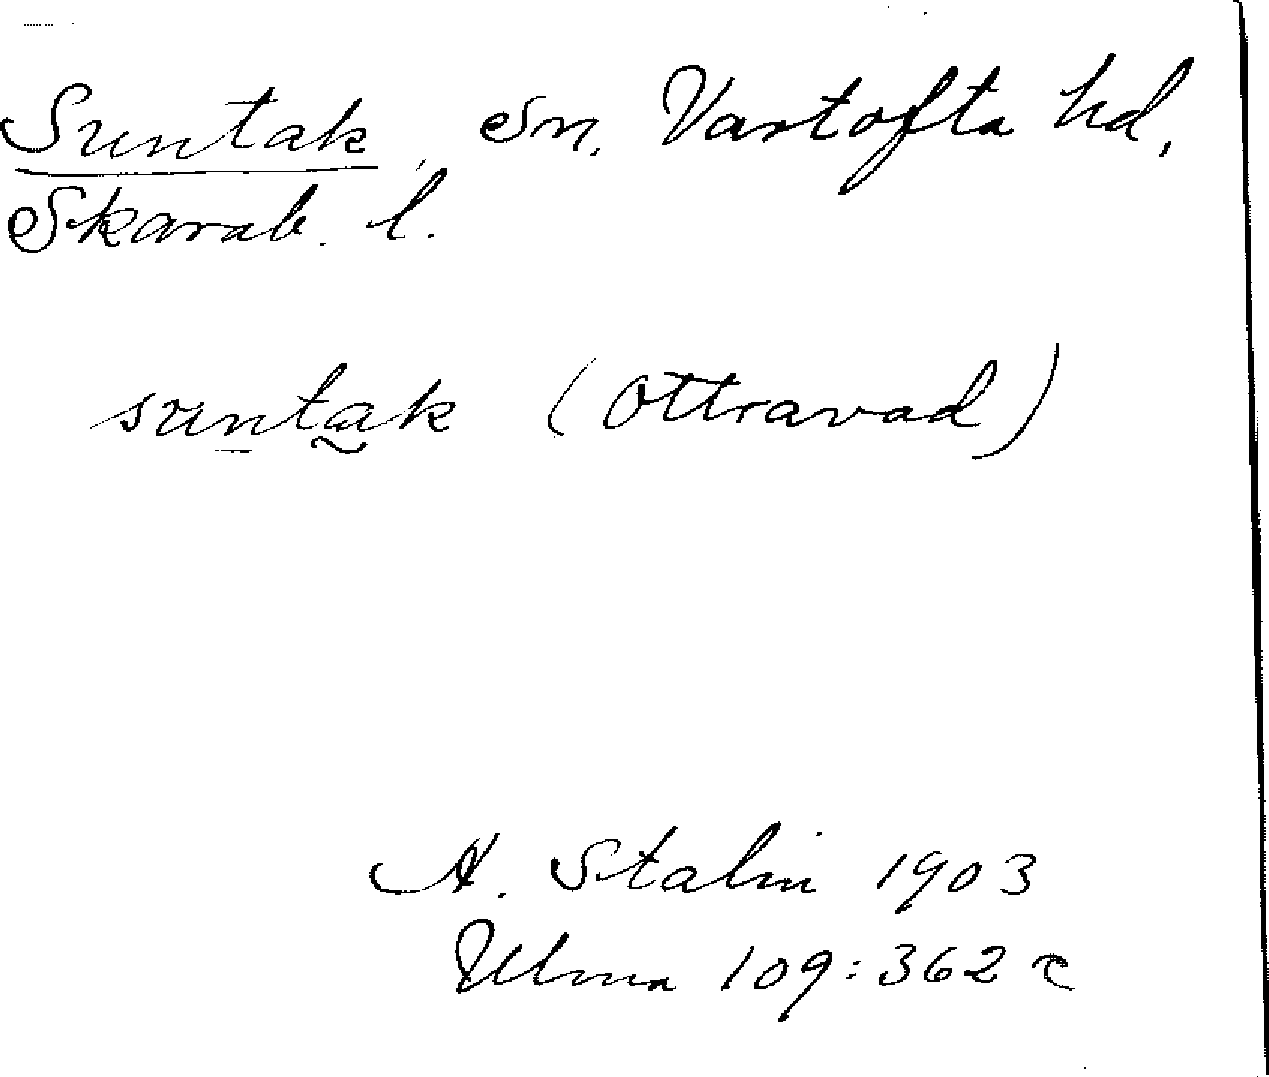 Suntak, sn. Vartofta hd,
Skarab. l.
suntak (Ottravad)
A. Stalin 1903
Ulma 109:362 c